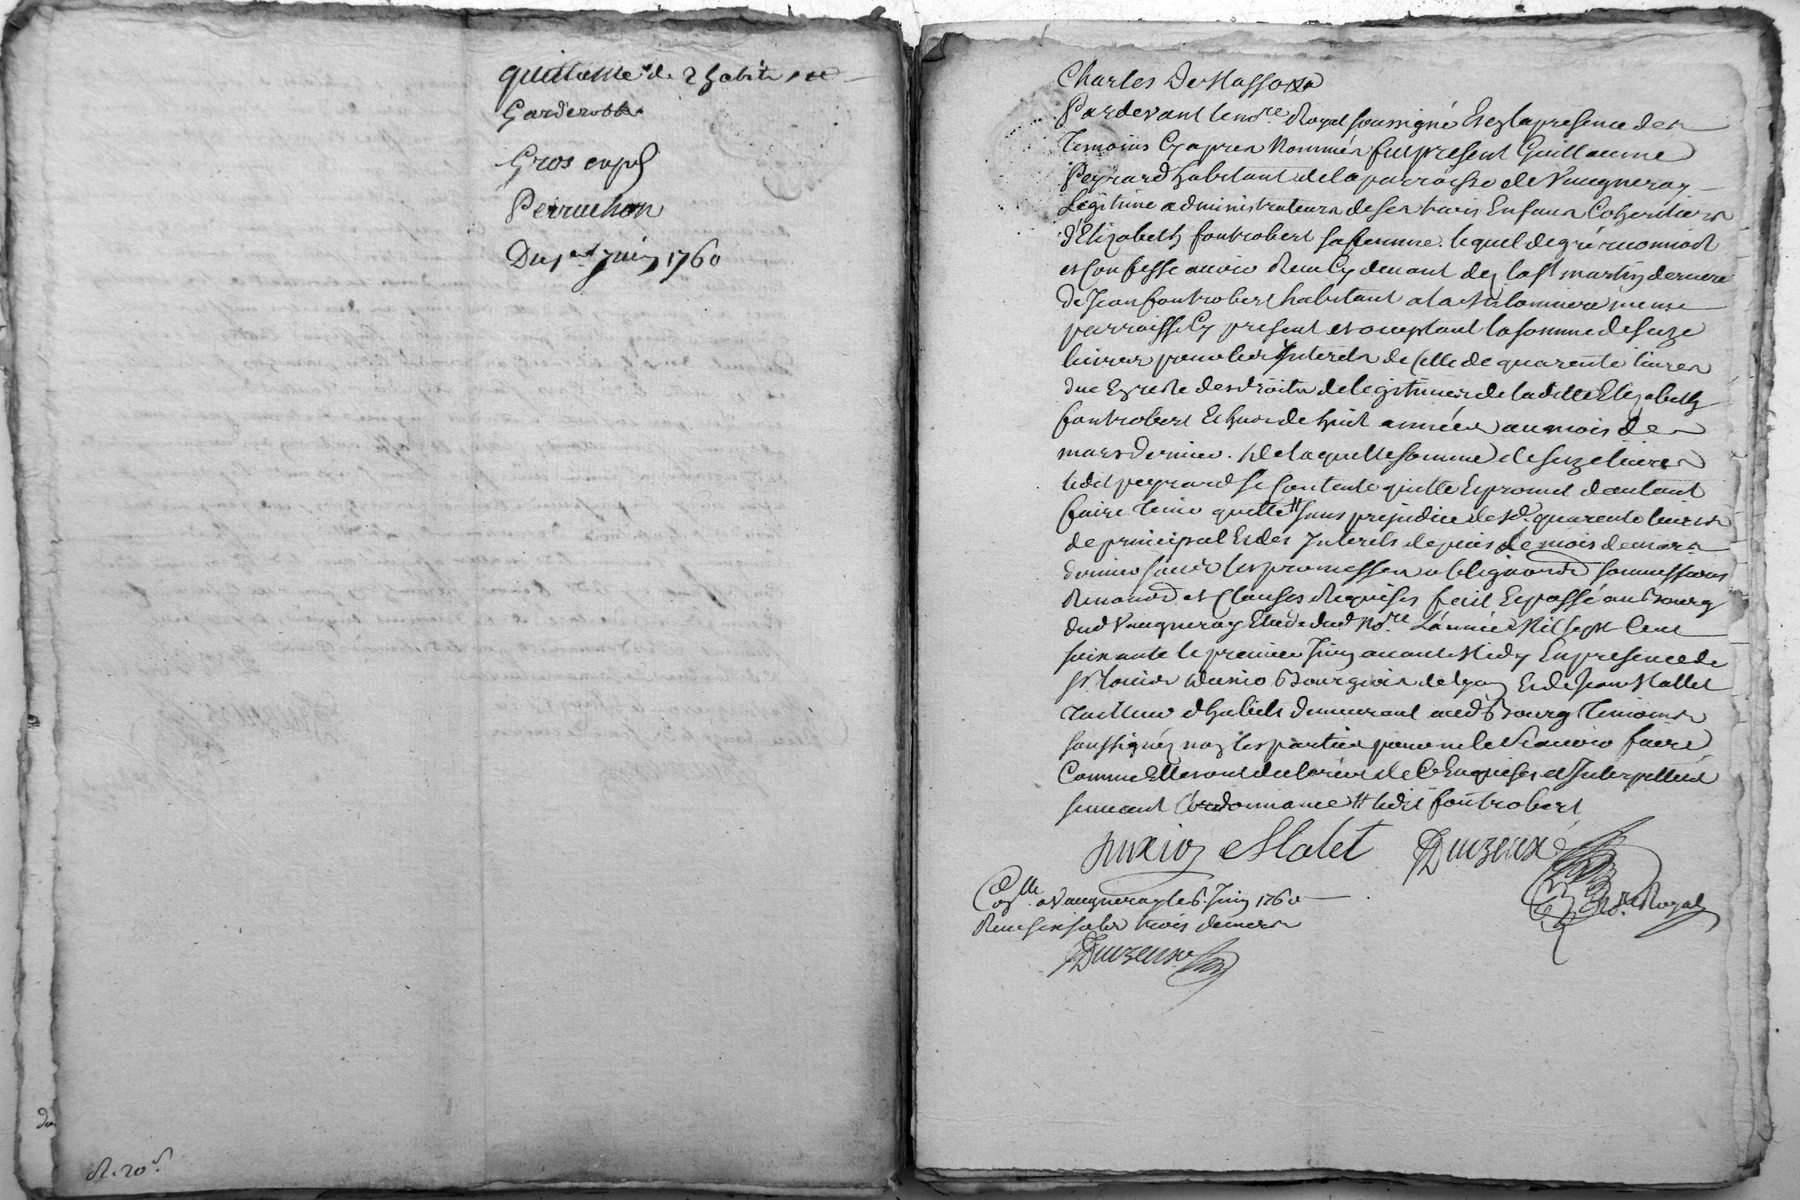 quittance de 2 habits et
Garderobbe
Gros exp.
Perrachon
Du 1er Juin 1760
R. 20s.
Charles De Masso
Pardevant le nore. Royal soussigné Et en la presence des
Temoins Cy apres Nommés fut present Guillaume
Peyrard habitant de la parroisse de Vaugneray
Legitime administrateur de ses trois Enfans Coheritiers
d'Elizabeth fontrobert sa femme. lequel de gré reconnoit
et Confesse avoir Receu Cy devant de la st martin derniere
de Jean fontrobert habitant a la Milonniere meme
parroisse Cy present et acceptant la somme de seize
livres pour les Interets de Celle de quarente livres
due En reste des droits de legitimes de ladite Elizabeth
fontrobert Echus de huit années au mois de
mars dernier. de laquelle somme de seize livres
ledit peyrard se Contente quitte Et promet d'autant
faire tenir quitte # sans prejudice desd. quarente livres
de principal Et des Interets depuis le mois de mars
dernier sous les promesses obligations soumissions
Renons. et Clauses Requises fait Et passé au Bourg
dud Vaugneray Etude dud Nore. L'année Mil sept Cent
soixante le premier Juin avant Midy En presence de
sr. Bourgeois de Lyon Et de Jean Mallet
Tailleur d'habits demeurant aud Bourg Temoins
soussignés non les parties pour ne le Scavoir faire
Comme Elles ont declarées de Ce Enquises et Interpellées
suivant l'ordonnance # ledit fontrobert
Malet Duizerué
Colle. a Vaugneray le 6. Juin 1760
Receu six sols trois deniers
Nre. Royal
Duizerué